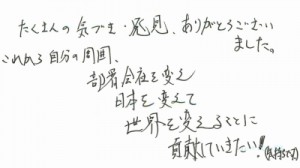 たくさんの気づき・発見、ありがとうござい
ました。
これから自分の周囲、
部署会社を変え
日本を変えて
世界を変えることに
貢献していきたい!